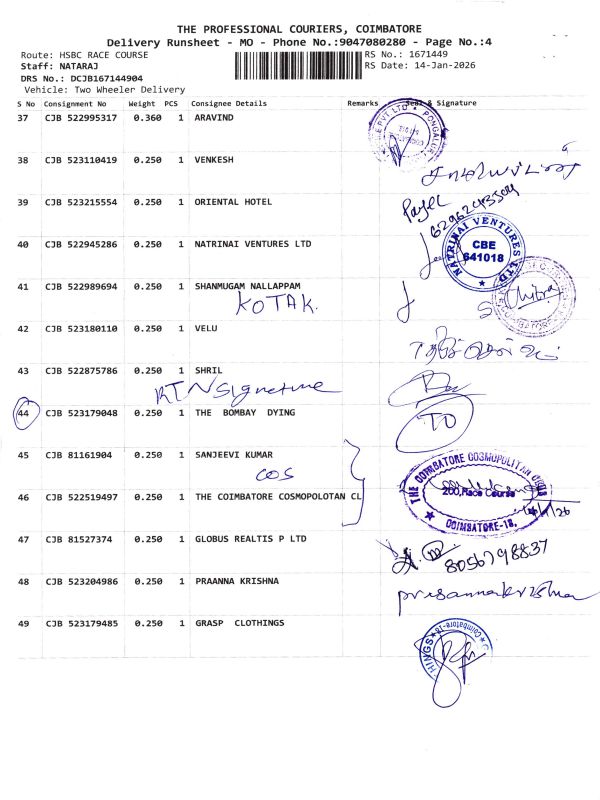 THE PROFESSIONAL COURIERS, COIMBATORE
Delivery Runsheet - MO - Phone No.:9047080280 - Page No.:4
Route: HSBC RACE COURSE RS No.: 1671449
Staff: NATARAJ RS Date: 14-Jan-2026
DRS No.: DCJB167144904
Vehicle: Two Wheeler Delivery
S No Consignment No Weight PCS Consignee Details Remarks Seal & Signature
37 CJB 522995317 0.360 1 ARAVIND
38 CJB 523110419 0.250 1 VENKESH
39 CJB 523215554 0.250 1 ORIENTAL HOTEL
40 CJB 522945286 0.250 1 NATRINAI VENTURES LTD
NATRINAI VENTURES LTD
CBE
641018
41 CJB 522989694 0.250 1 SHANMUGAM NALLAPPAM
KOTAK.
Chitra
42 CJB 523180110 0.250 1 VELU
43 CJB 522875786 0.250 1 SHRIL
RTN Signature
44 CJB 523179048 0.250 1 THE BOMBAY DYING
TO
45 CJB 81161904 0.250 1 SANJEEVI KUMAR
COS
46 CJB 522519497 0.250 1 THE COIMBATORE COSMOPOLOTAN CL
THE COIMBATORE COSMOPOLITAN CLUB
200, Race Course
COIMBATORE-18.
47 CJB 81527374 0.250 1 GLOBUS REALTIS P LTD
8056798837
48 CJB 523204986 0.250 1 PRAANNA KRISHNA
prasannakrishna
49 CJB 523179485 0.250 1 GRASP CLOTHINGS
Coimbatore-18